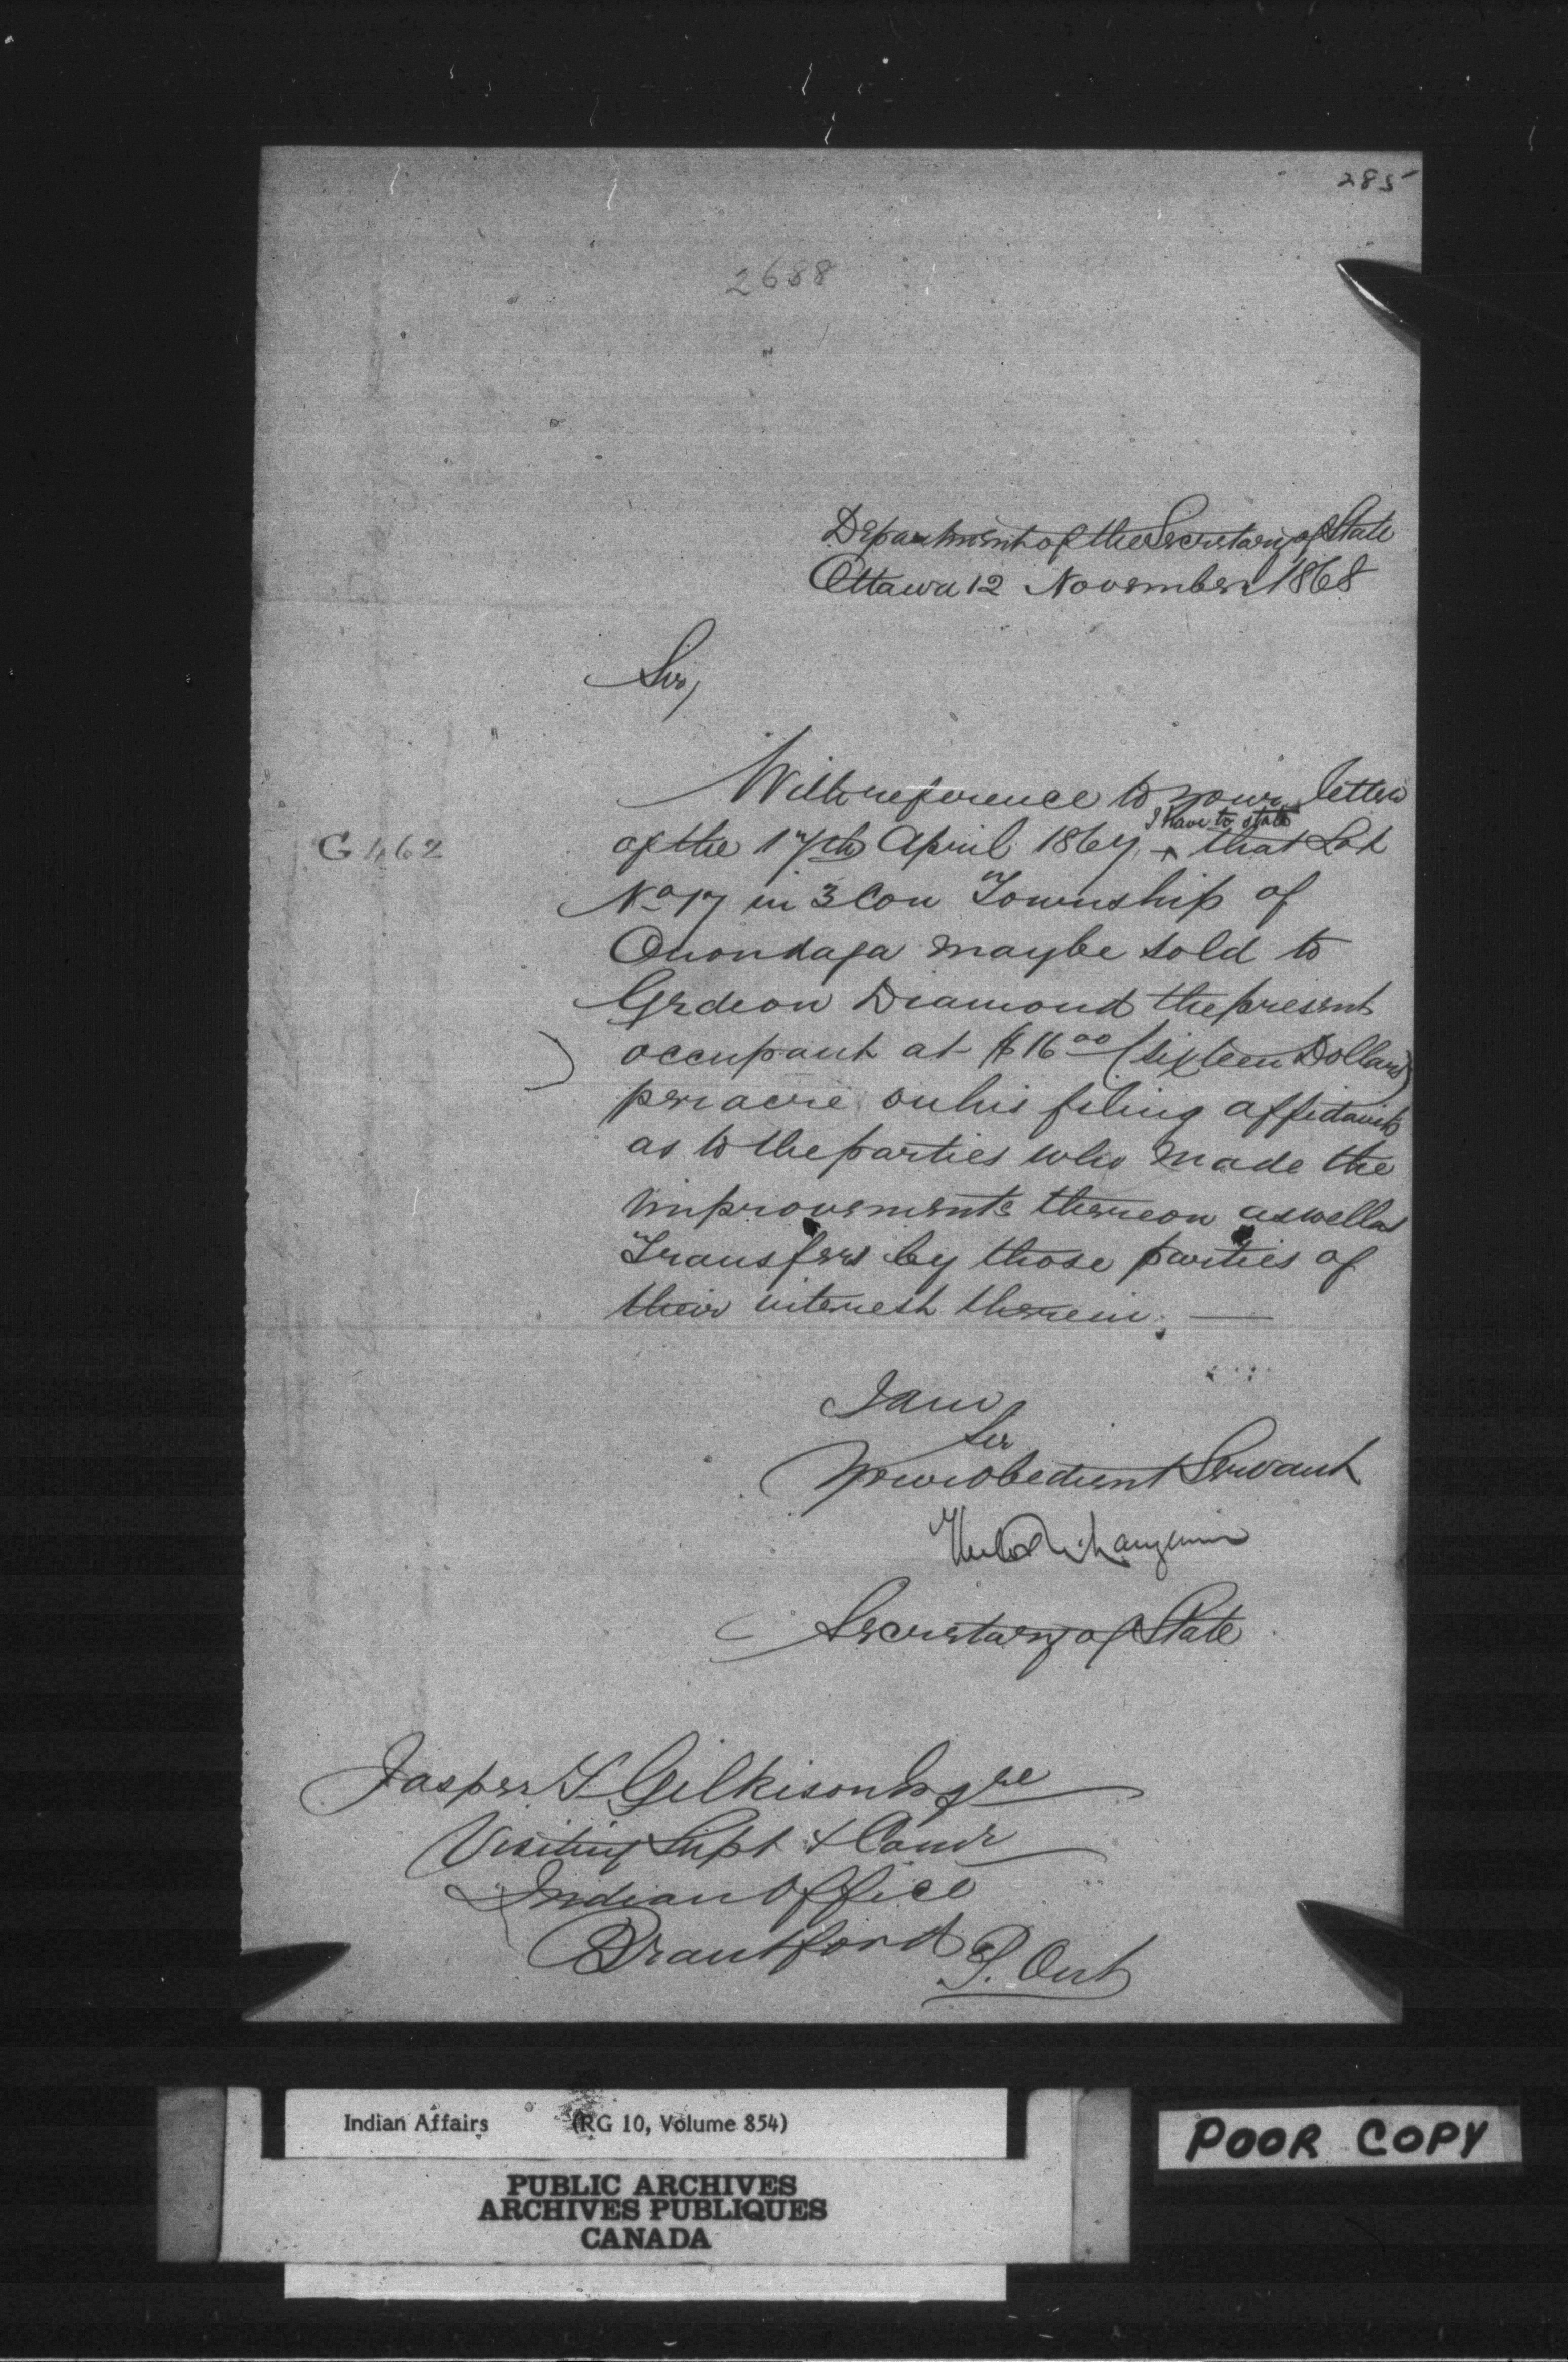 285
2688
Department of the Secretary of State
Ottawa 12 November 1868
Sir,
With reference to your letter
I have to state
G 462
of the 17th April 1867 ^ that Lot
No 17 in 3 Con Township of
Onondaga may be sold to
Gedeon Diamond the present
occupant at $16 00 (sixteen Dollars)
per acre on his filing affidavits
as to the parties who made the
improvements thereon as well as
Transfers by those parties of
their interest therein. —
I am
Sir
Your obedient Servant
Langevin
Secretary of State
Jasper T Gilkison Esqre
Visiting Supt & Comr
Indian Office
Brantford
P. Ont
Indian Affairs (RG 10, Volume 854)
PUBLIC ARCHIVES
ARCHIVES PUBLIQUES
CANADA
POOR COPY